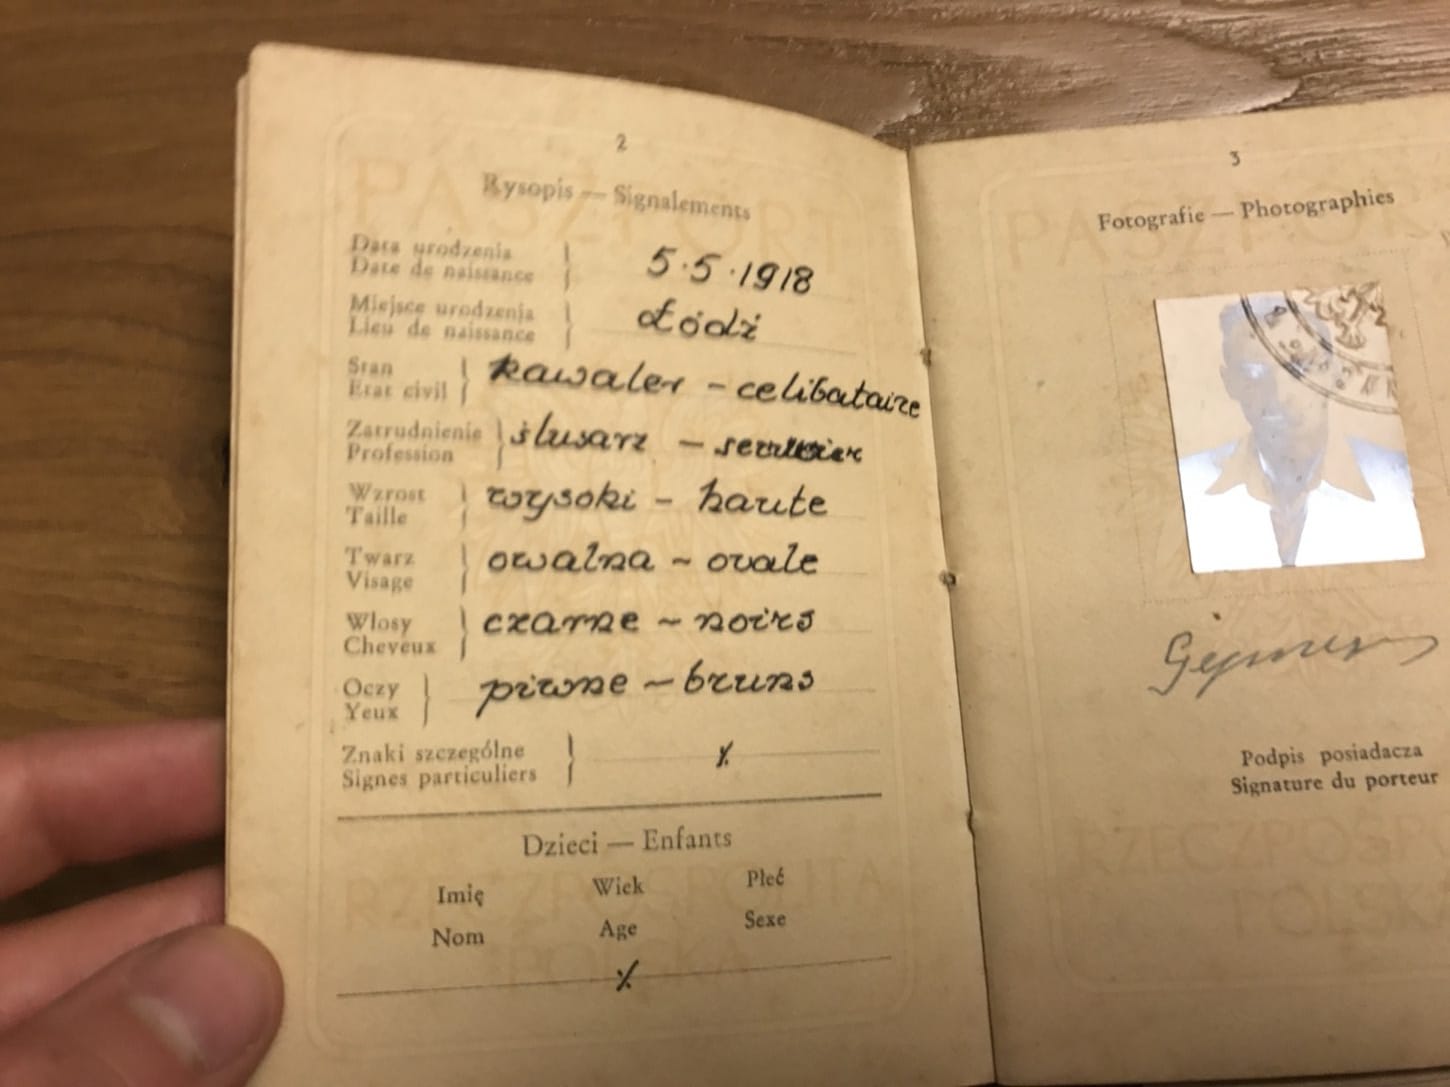 2
Rysopis — Signalements
Data urodzenia
Date de naissance
5.5.1918
Miejsce urodzenia
Lieu de naissance
Łódź
Stan
Etat civil
kawaler - celibataire
Zatrudnienie
Profession
ślusarz -
Wzrost
Taille
wysoki - haute
Twarz
Visage
owalna - ovale
Włosy
Cheveux
czarne - noirs
Oczy
Yeux
piwne - bruns
Znaki szczególne
Signes particuliers
Dzieci — Enfants
Imię Wiek Płeć
Nom Age Sexe
PASZPORT
RZECZPOSPOLITA
POLSKA
3
Fotografie — Photographies
Podpis posiadacza
Signature du porteur